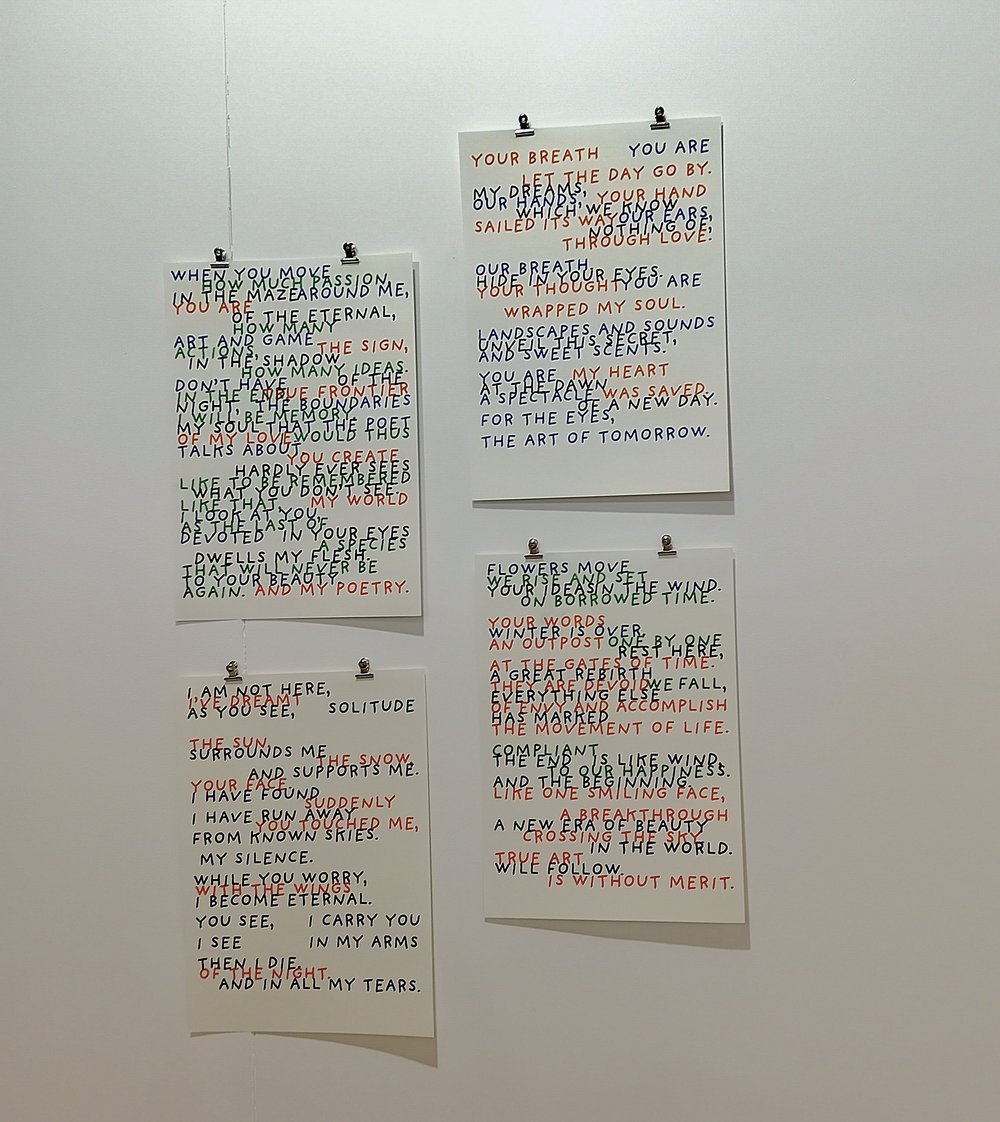 WHEN YOU MOVE
HOW MUCH PASSION,
IN THE MAZE AROUND ME,
YOU ARE
OF THE ETERNAL,
HOW MANY
ART AND GAME
THE SIGN,
ACTIONS,
IN THE SHADOW
HOW MANY IDEAS.
DON'T HAVE OF THE
IN THE END FRONTIER
NIGHT, THE BOUNDARIES
I WILL BE MEMORY.
MY SOUL THAT THE POET
OF MY LOVE WOULD THUS
TALKS ABOUT,
YOU CREATE
HARDLY EVER SEES
LIKE TO BE REMEMBERED
WHAT YOU DON'T SEE.
LIKE THAT MY WORLD
I LOOK AT YOU,
AS THE LAST OF
DEVOTED IN YOUR EYES
A SPECIES
DWELLS MY FLESH.
THAT WILL NEVER BE
TO YOUR BEAUTY
AGAIN. AND MY POETRY.
YOUR BREATH YOU ARE
LET THE DAY GO BY.
MY DREAMS,
OUR HANDS, YOUR HAND
WHICH WE KNOW
SAILED ITS WAY OUR EARS,
NOTHING OF,
THROUGH LOVE.
OUR BREATH
HIDE IN YOUR EYES.
YOUR THOUGHT YOU ARE
WRAPPED MY SOUL.
LANDSCAPES AND SOUNDS
UNVEIL THIS SECRET,
AND SWEET SCENTS.
YOU ARE MY HEART
AT THE DAWN
A SPECTACLE WAS SAVED.
OF A NEW DAY.
FOR THE EYES,
THE ART OF TOMORROW.
I AM NOT HERE,
I'VE DREAMT
AS YOU SEE, SOLITUDE
THE SUN,
SURROUNDS ME
THE SNOW,
AND SUPPORTS ME.
YOUR FACE
I HAVE FOUND
SUDDENLY
I HAVE RUN AWAY
YOU TOUCHED ME,
FROM KNOWN SKIES.
MY SILENCE.
WHILE YOU WORRY,
WITH THE WINGS
I BECOME ETERNAL.
YOU SEE, I CARRY YOU
I SEE IN MY ARMS
THEN I DIE.
OF THE NIGHT.
AND IN ALL MY TEARS.
FLOWERS MOVE
WE RISE AND SET
YOUR IDEAS IN THE WIND.
ON BORROWED TIME.
YOUR WORDS
WINTER IS OVER,
AN OUTPOST ONE BY ONE
REST HERE,
AT THE GATES OF TIME.
A GREAT REBIRTH
THEY ARE DEVOID WE FALL,
EVERYTHING ELSE
OF ENVY AND ACCOMPLISH
HAS MARKED
THE MOVEMENT OF LIFE.
COMPLIANT
THE END IS LIKE WIND,
TO OUR HAPPINESS.
AND THE BEGINNING
LIKE ONE SMILING FACE,
A BREAKTHROUGH
A NEW ERA OF BEAUTY
CROSSING THE SKY
IN THE WORLD.
TRUE ART
WILL FOLLOW.
IS WITHOUT MERIT.